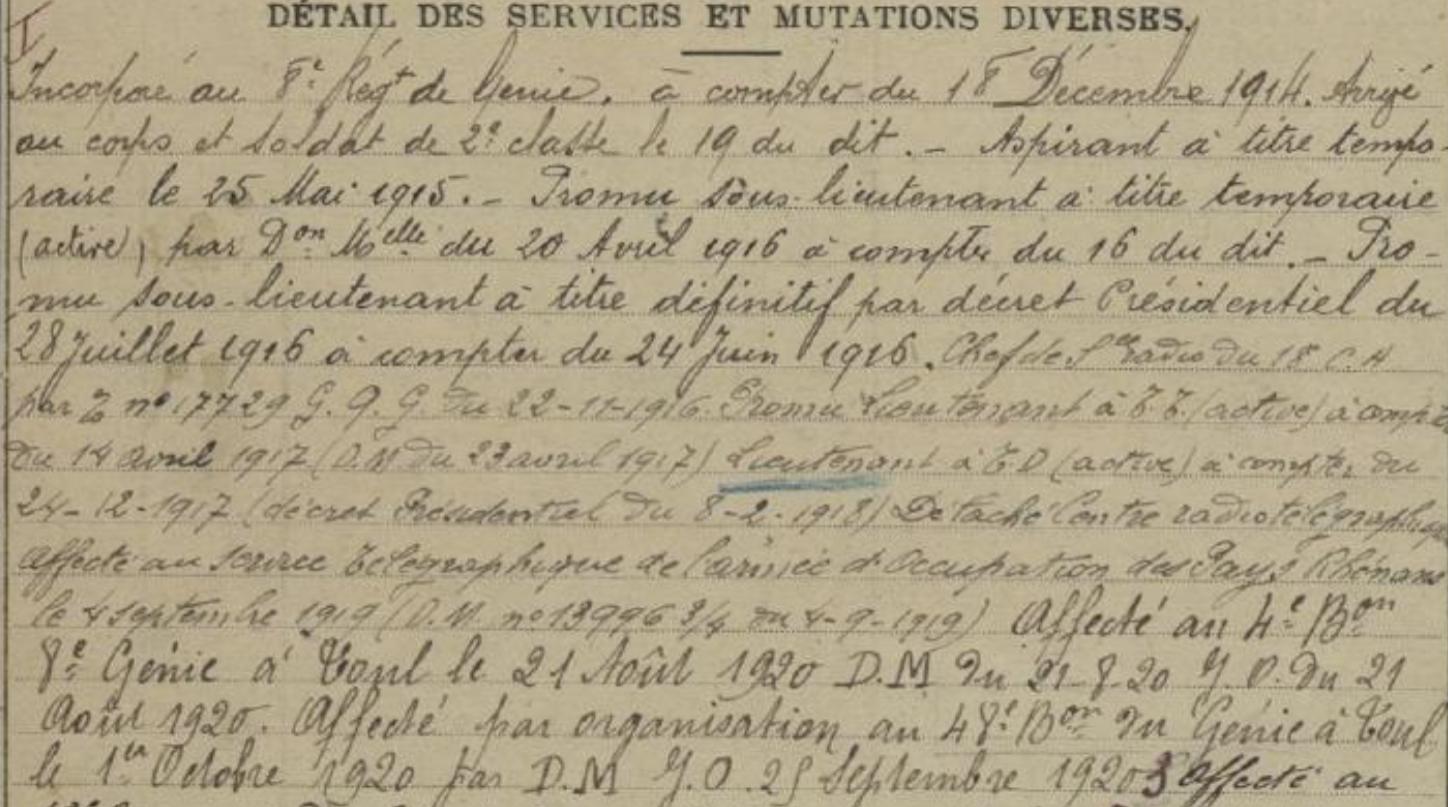 DÉTAIL DES SERVICES ET MUTATIONS DIVERSES.
Incorporé au 8e Régt de Génie, à compter du 18 Décembre 1914. Arrivé
au corps et soldat de 2e classe le 19 du dit. - Aspirant à titre tempo-
raire le 25 Mai 1915. - Promu sous-lieutenant à titre temporaire
(active) par Don Melle du 20 Avril 1916 à compter du 16 du dit. - Pro-
mu sous-lieutenant à titre définitif par décret Présidentiel du
28 Juillet 1916 à compter du 24 Juin 1916. Chef de Son radio du 18 C.A
par T n° 17729 G.Q.G. du 22-11-1916. Promu Lieutenant à T.T. (active) à compter
du 14 avril 1917 (D.M du 23 avril 1917) Lieutenant à T.D (active) à compter du
24-12-1917 (décret Présidentiel du 8-2-1918) Détaché Centre radiotélégraphique
affecté au service télégraphique de l'armée d'Occupation des Pays Rhénans
le 4 septembre 1919 (D.M. n° 13996 3/4 du 4-9-1919) Affecté au 4e Bon
8e Génie à Toul le 21 Août 1920 D.M du 21-8-20 J.O. du 21
Août 1920. Affecté par organisation au 48e Bon du Génie à Toul
le 1er Octobre 1920 par D.M J.O. 25 Septembre 1920 affecté au